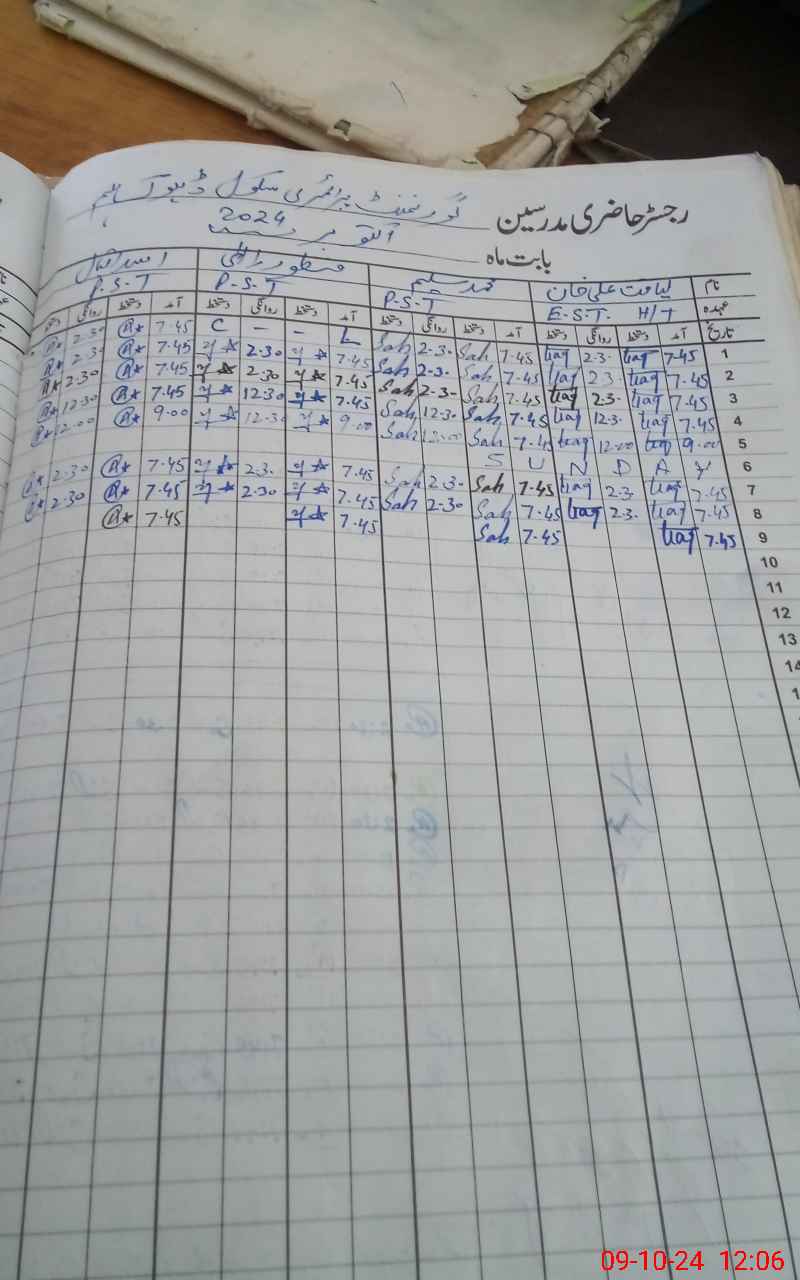 رجسٹر حاضری مدرسین گورنمنٹ پرائمری سکول
بابت ماہ اکتوبر 2024
نام لیاقت علی خان محمد سلیم منظور الٰہی
عہدہ E.S.T. H/T P.S.T P.S.T P.S.T
تاریخ آمد دستخط روانگی دستخط آمد دستخط روانگی دستخط آمد دستخط روانگی دستخط آمد دستخط روانگی
1 7.45 liaq 2.3. liaq 7.45 Sah 2.3. Sah L — — C 7.45 2.30
2 7.45 liaq 2.3. liaq 7.45 Sah 2.3. Sah 7.45 2.30 7.45 2.30
3 7.45 liaq 2.3. liaq 7.45 Sah 2.3. Sah 7.45 2.30 7.45 2.30
4 7.45 liaq 12.3. liaq 7.45 Sah 12.3. Sah 7.45 12.30 7.45 12.30
5 9.00 liaq 12.00 liaq 7.45 Sah 12.00 Sah 9.00 12.30 9.00 12.00
6 S U N D A Y
7 7.45 liaq 2.3. liaq 7.45 Sah 2.30 Sah 7.45 2.3. 7.45 2.30
8 7.45 liaq 2.3. liaq 7.45 Sah 2.30 Sah 7.45 2.30 7.45 2.30
9 7.45 liaq 7.45 Sah 7.45 7.45
10
11
12
13
14
09-10-24 12:06